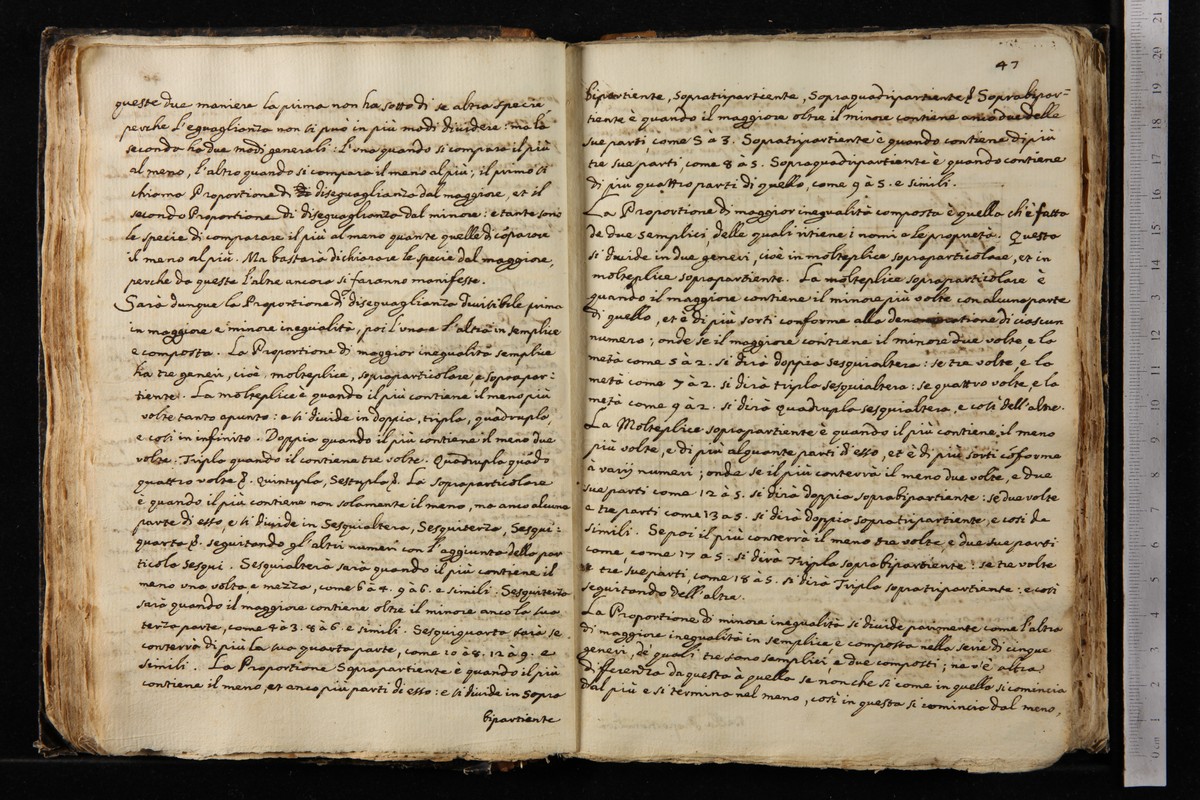 queste due maniere la prima non ha sotto di se altra specie
perche l'eguaglianza non si può in più modi dividere: ma la
seconda ha due modi generali: l'uno quando si compara il più
al meno, l'altro quando si compara il meno al più; il primo si
chiama Proportione di diseguaglianza dal maggiore, et il
secondo Proportione di diseguaglianza dal minore: e tante sono
le specie di comparare il più al meno quante quelle di cõparare
il meno al più. Ma bastarà dichiarare le specie dal maggiore,
perche da queste l'altre ancora si faranno manifeste.
Sarà dunque la Proportione di diseguaglianza divisibile prima
in maggiore e minore inegualità, poi l'una e l'altra in semplice
e composta. La Proportione di maggior inegualità semplice
ha tre generi, cioè, molteplice, sopraparticolare, e soprapar:
tiente. La molteplice è quando il più contiene il meno più
volte tanto apunto: e si divide in doppia, tripla, quadrupla,
e così in infinito. Doppia quando il più contiene il meno due
volte. Tripla quando il contiene tre volte. Quadrupla quãdo
quattro volte &. Quintupla, Sestupla &. La sopraparticolare
è quando il più contiene non solamente il meno, ma anco alcuna
parte di esso, e si divide in Sesquialtera, Sesquiterza, Sesqui:
quarta &. seguitando gl'altri numeri con l'aggiunta della par
ticola sesqui. Sesquialtera sarà quando il più contiene il
meno una volta e mezza, come 6 à 4. 9 à 6. e simili. Sesquiterza
sarà quando il maggiore contiene oltre il minore anco la sua
terza parte, come 4 à 3. 8 à 6. e simili. Sesquiquarta sarà se
conterrà di più la sua quarta parte, come 10 à 8. 12 à 9. e
simili. La Proportione Soprapartiente è quando il più
contiene il meno, et anco più parti di esso: e si divide in Sopra
bipartiente
47
bipartiente, Sopratripartiente, Sopraquadripartiente &. Soprabipar=
tiente è quando il maggiore oltre il minore contiene anco due delle
sue parti, come 5 à 3. Sopratripartiente è quando contiene di più
tre sue parti, come 8 à 5. Sopraquadripartiente è quando contiene
di più quattro parti di quello, come 9 à 5. e simili.
La Proportione di maggior inegualità composta è quella ch'è fatta
de due semplici, delle quali ritiene i nomi e le propretà. Questa
si divide in due generi, cioè in molteplice sopraparticolare, et in
molteplice soprapartiente. La molteplice sopraparticolare è
quando il maggiore contiene il minore più volte con alcuna parte
di quello, et è di più sorti conforme alla denominatione di ciascun
numero; onde se il maggiore contiene il minore due volte, e la
metà come 5 à 2. si dirà doppia sesquialtera: se tre volte, e la
metà come 7 à 2. si dirà tripla sesquialtera: se quattro volte, e la
metà come 9 à 2. si dirà quadrupla sesquialtera, e così dell'altre.
La Molteplice soprapartiente è quando il più contiene, il meno
più volte, e di più alquante parti d'esso, et è di più sorti cõforme
à varij numeri; onde se il più conterrà il meno due volte, e due
sue parti come 12 à 5. si dirà doppia soprabipartiente: se due volte
e tre parti come 13 à 5. si dirà doppia sopratripartiente, e così de
simili. Se poi il più conterrà il meno tre volte, e due sue parti
come, come 17 à 5. si dirà Tripla soprabipartiente: se tre volte
e tre, sue parti, come 18 à 5. si dirà Tripla sopratripartiente: e così
seguitando dell'altre.
La Proportione di minore inegualità si divide parimente come l'altra
di maggiore inegualità in semplice e composta nella serie di cinque
generi, de quali tre sono semplici e due composti; ne v'è altra
differenza da questa à quella se non che si come in quella si comincia
dal più e si termina nel meno, così in questa si comincia dal meno,